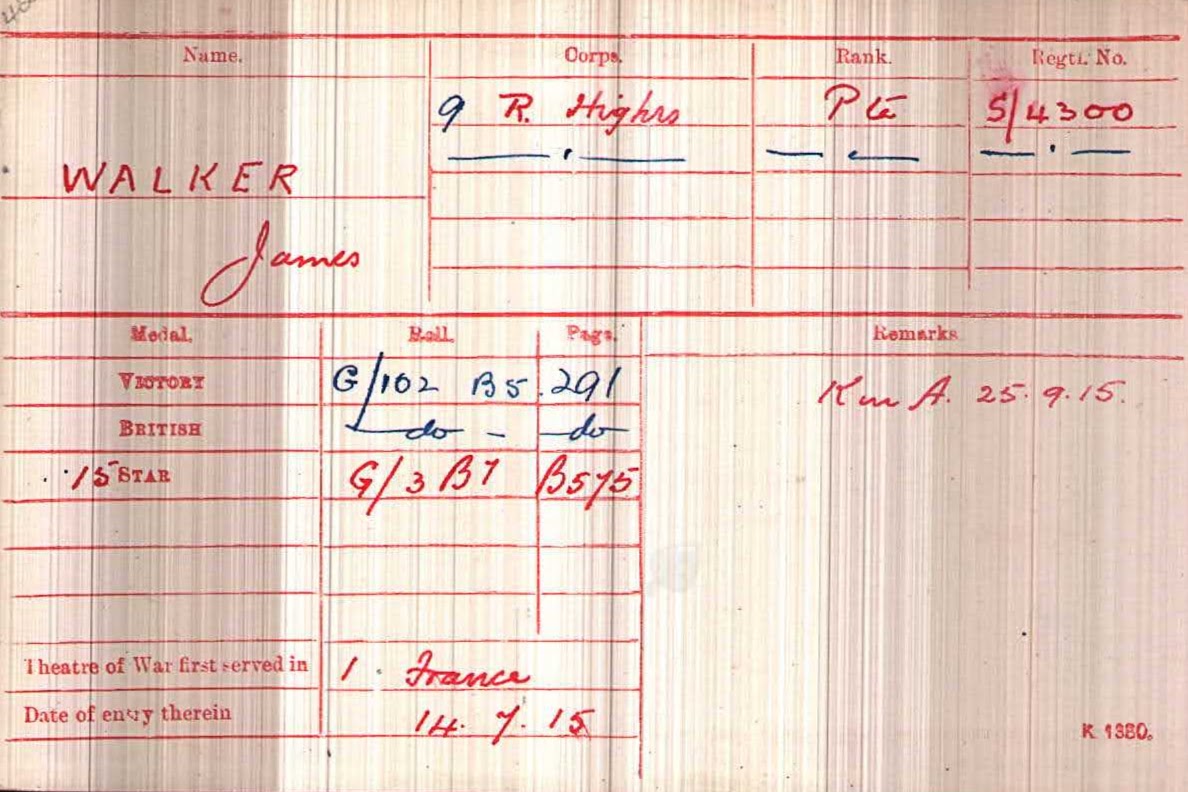 Name. Corps. Rank. Regtl. No.
9 R. Highrs Pte S/4300
WALKER
James
Medal. Roll. Page. Remarks
VICTORY G/102 B5 291 K in A. 25.9.15.
BRITISH do - do
'15 STAR G/3 B7 B575
Theatre of War first served in 1. France
Date of entry therein 14.7.15
K 1380.